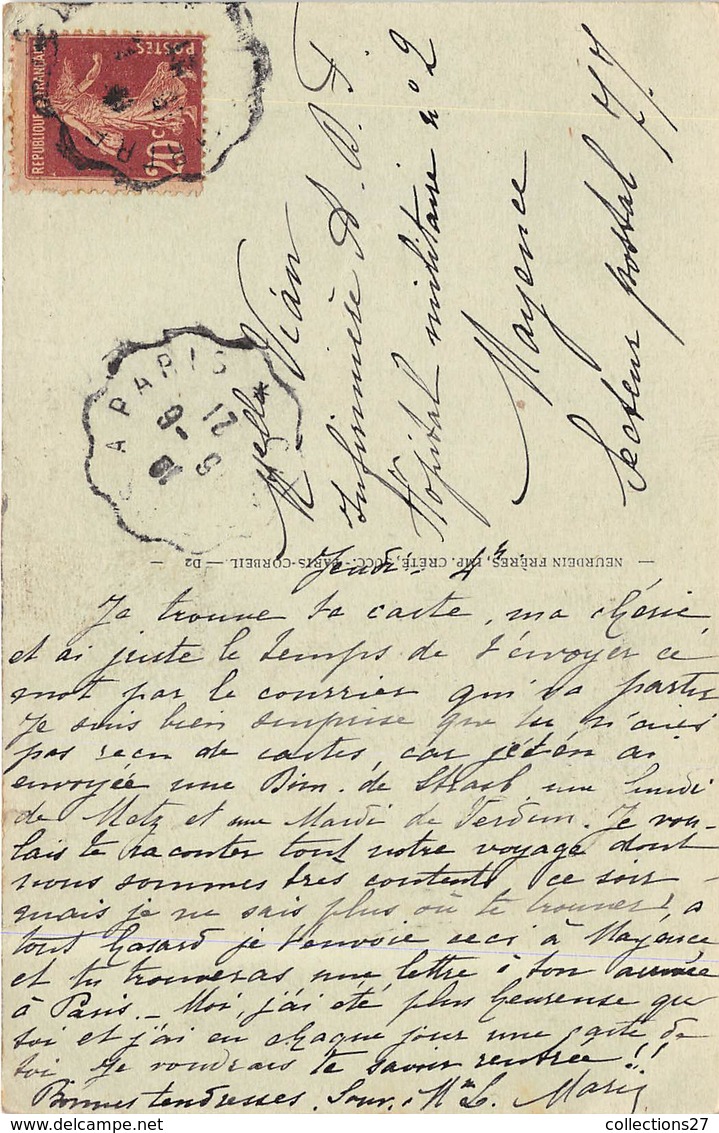 RÉPUBLIQUE FRANÇAISE
POSTES
20c
A PARIS
12
9-6
19
Melle Vian
Infirmière A. D. F.
Hôpital militaire n° 2
Mayence
Secteur postal 77
NEURDEIN FRÈRES, IMP. CRÉTÉ, SUCC. - PARIS-CORBEIL. — D2
Jeudi - 4h
Je trouve ta carte, ma chérie,
et ai juste le temps de t'envoyer ce
mot par le courrier qui va partir
Je suis bien surprise que tu n'aies
pas reçu de cartes, car je t'en ai
envoyée une Dim. de Strasb. une lundi
de Metz et une Mardi de Verdun. Je vou-
lais te raconter tout notre voyage dont
nous sommes très contents ce soir -
mais je ne sais plus où te trouver! à
tout hasard je t'envoie ceci à Mayence,
et tu trouveras une lettre à ton arrivée
à Paris. - Moi, j'ai été plus heureuse que
toi et j'ai eu chaque jour une carte de
toi. Je voudrais te savoir rentrée!!
Bonnes tendresses. Souv. Mme L. Marie
collections27